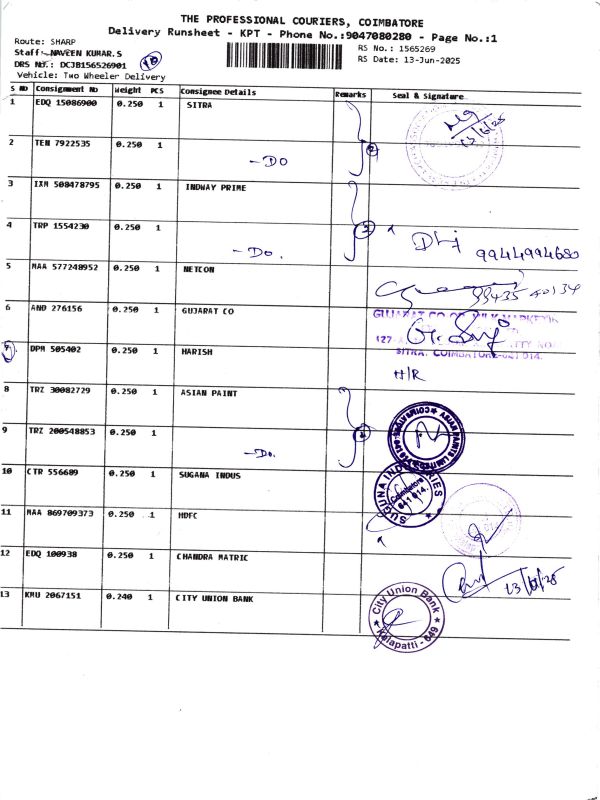 THE PROFESSIONAL COURIERS, COIMBATORE
Delivery Runsheet - KPT - Phone No.:9047080280 - Page No.:1
Route: SHARP
RS No.: 1565269
Staff: NAVEEN KUMAR.S
RS Date: 13-Jun-2025
DRS No.: DCJB156526901
Vehicle: Two Wheeler Delivery
S No Consignment No Weight PCS Consignee Details Remarks Seal & Signature
1 EDQ 15086900 0.250 1 SITRA
13/6/25
2 TEN 7922535 0.250 1 - DO
3 IXM 508478795 0.250 1 INDWAY PRIME
4 TRP 1554230 0.250 1 - Do.
9944994680
5 MAA 577248952 0.250 1 NETCON
6 AND 276156 0.250 1 GUJARAT CO
GUJARAT CO OP MILK MARKETIN
7 DPM 505402 0.250 1 HARISH
SITRA. COIMBATORE-641 014.
H/R
8 TRZ 30082729 0.250 1 ASIAN PAINT
9 TRZ 200548853 0.250 1 - Do.
10 CTR 556689 0.250 1 SUGANA INDUS
SUGUNA INDUSTRIES
Coimbatore
641 014.
11 MAA 869709373 0.250 1 HDFC
12 EDQ 100938 0.250 1 CHANDRA MATRIC
13 KMU 2067151 0.240 1 CITY UNION BANK
City Union Bank
Kalapatti - 649